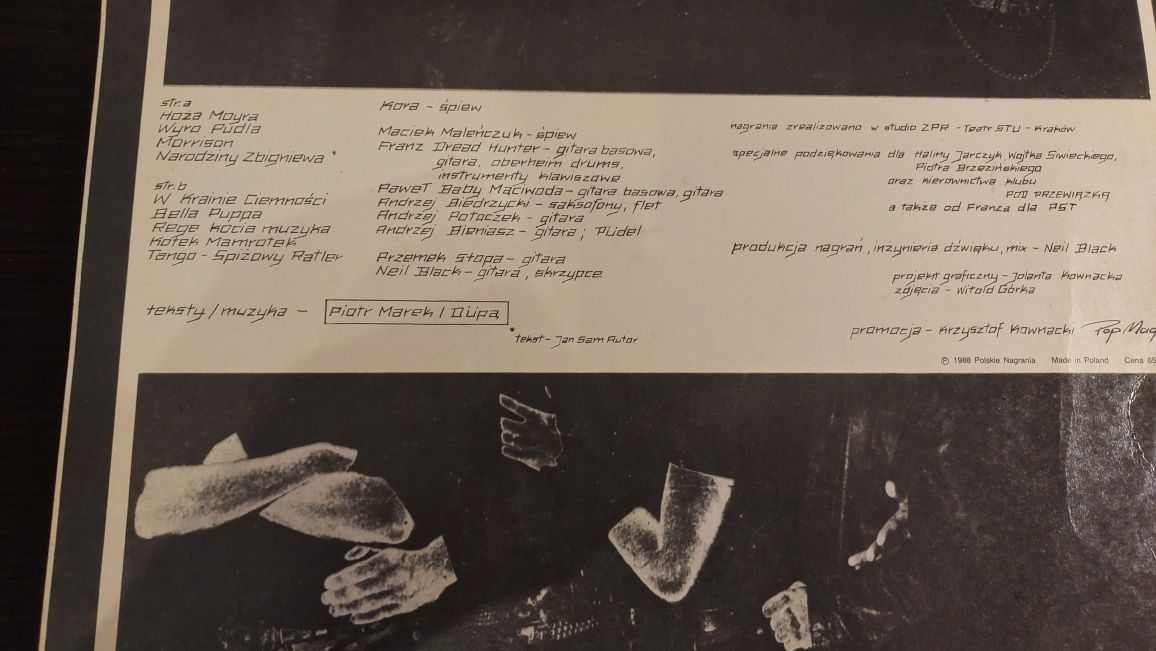 str.a
Hoża Moyra
Wyro Pudla
Morrison
Narodziny Zbigniewa *
str.b
W Krainie Ciemności
Bella Puppa
Rege Kocia muzyka
Kotek Mamrotek
Tango - Spiżowy Ratler
Kora - śpiew
Maciek Maleńczuk - śpiew
Franz Dread Hunter - gitara basowa,
gitara, oberheim drums,
instrumenty klawiszowe
Paweł Baby Maciwoda - gitara basowa, gitara
Andrzej Biedrzycki - saksofony, flet
Andrzej Potoczek - gitara
Andrzej Bieniasz - gitara ; Püdel
Przemek Stopa - gitara
Neil Black - gitara, skrzypce
teksty / muzyka - Piotr Marek / Düpa
* tekst - Jan Sam Autor
nagrania zrealizowano w studio ZPR - Teatr STU - Kraków
specjalne podziękowania dla Haliny Jarczyk, Wojtka Siwieckiego,
Piotra Brzezińskiego
oraz kierownictwa klubu
POD PRZEWIĄZKĄ
a także od Franza dla PST
produkcja nagrań, inżynieria dźwięku, mix - Neil Black
projekt graficzny - Jolanta Kownacka
zdjęcia - Witold Górka
promocja - Krzysztof Kownacki Pop Mag
Ⓟ 1988 Polskie Nagrania Made in Poland Cena 65